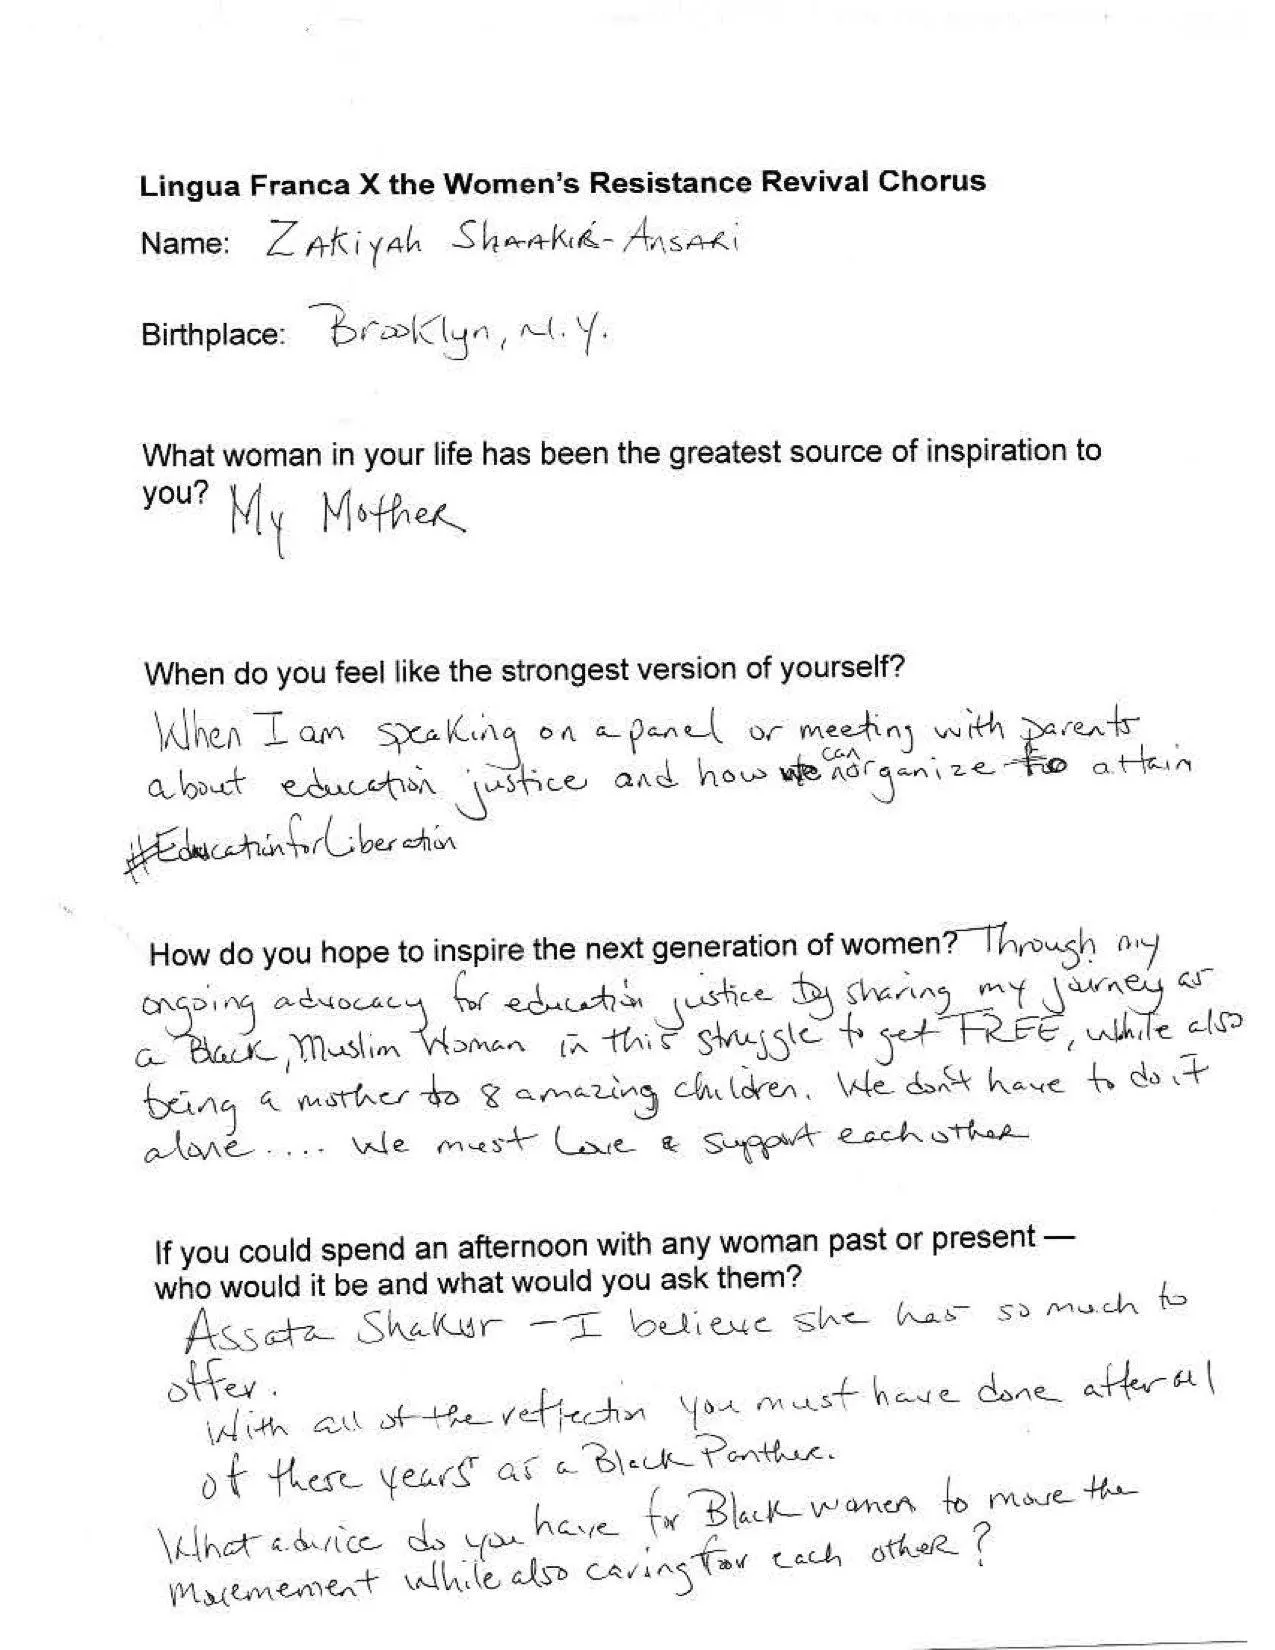 Lingua Franca X the Women's Resistance Revival Chorus
Name: Zakiyah Shaakir-Ansari
Birthplace: Brooklyn, N.Y.
What woman in your life has been the greatest source of inspiration to
you? My Mother
When do you feel like the strongest version of yourself?
When I am speaking on a panel or meeting with parents
about education justice and how we can organize to attain
#EducationforLiberation
How do you hope to inspire the next generation of women? Through my
ongoing advocacy for education justice by sharing my journey as
a Black, Muslim Woman in this struggle to get FREE, while also
being a mother to 8 amazing children. We don't have to do it
alone.... we must Love & support each other
If you could spend an afternoon with any woman past or present —
who would it be and what would you ask them?
Assata Shakur - I believe she has so much to
offer.
With all of the reflection you must have done after all
of these years as a Black Panther.
What advice do you have for Black women to move the
movemement while also caring for each other?